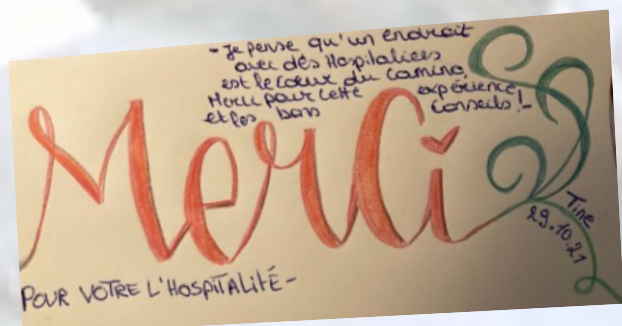 - Je pense qu'un endroit
avec des Hospitaliers
est le Coeur du Camino,
Merci pour cette expérience
et les bons Conseils! -
Merci
Tine
29.10.21
POUR VOTRE L'HOSPITALITÉ -